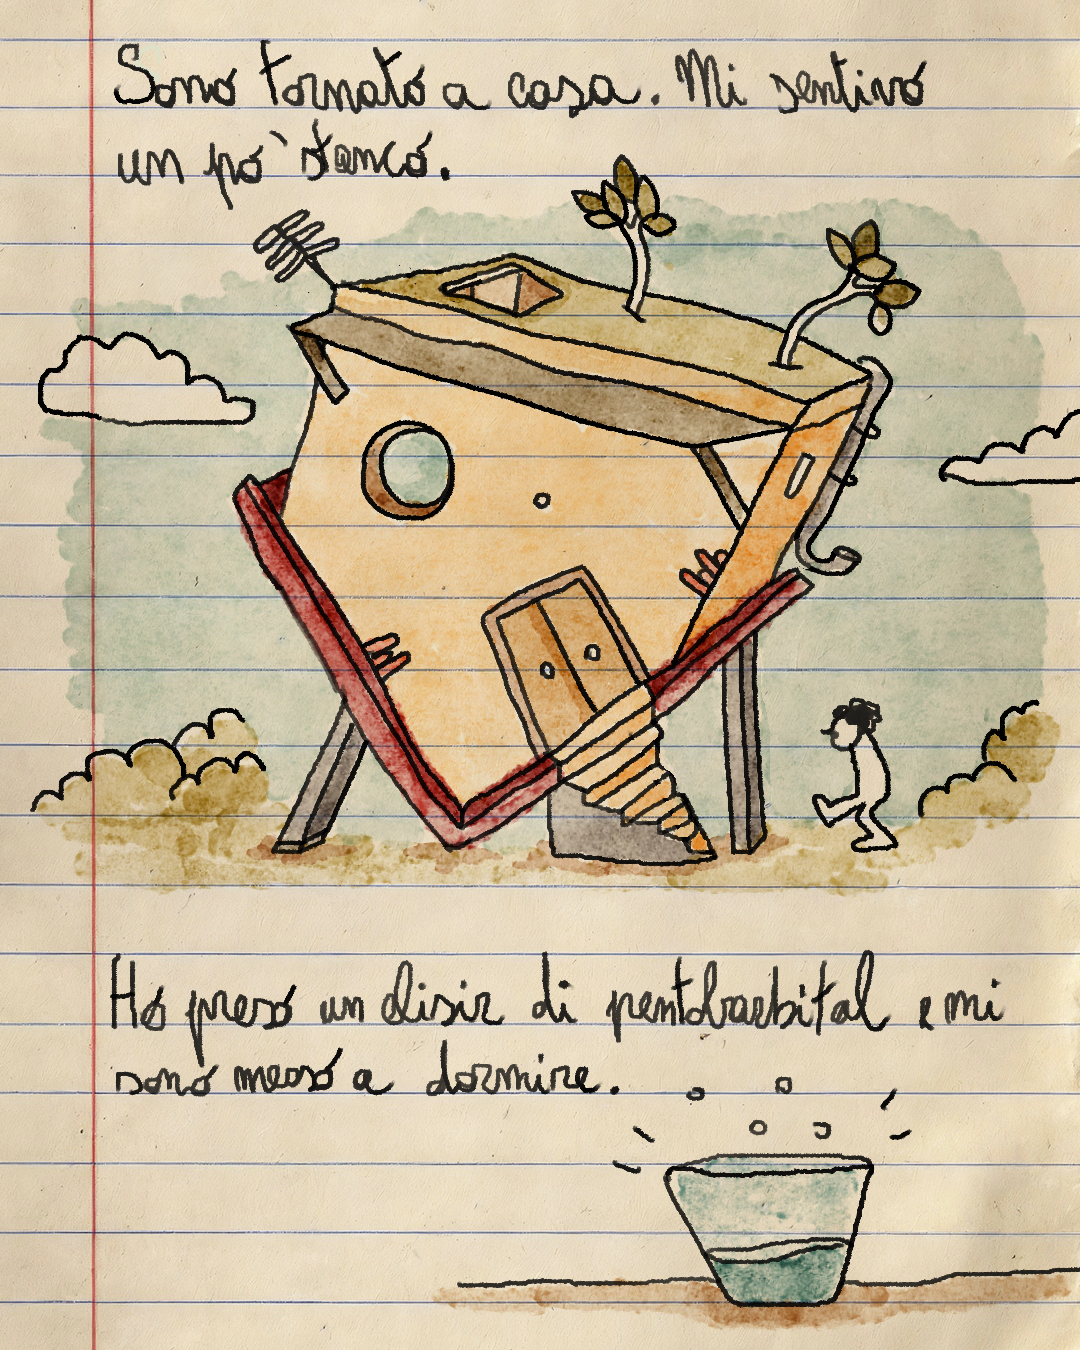 Sono tornato a casa. Mi sentivo
un po` stanco.
Ho preso un elisir di pentobarbital e mi
sono messo a dormire.